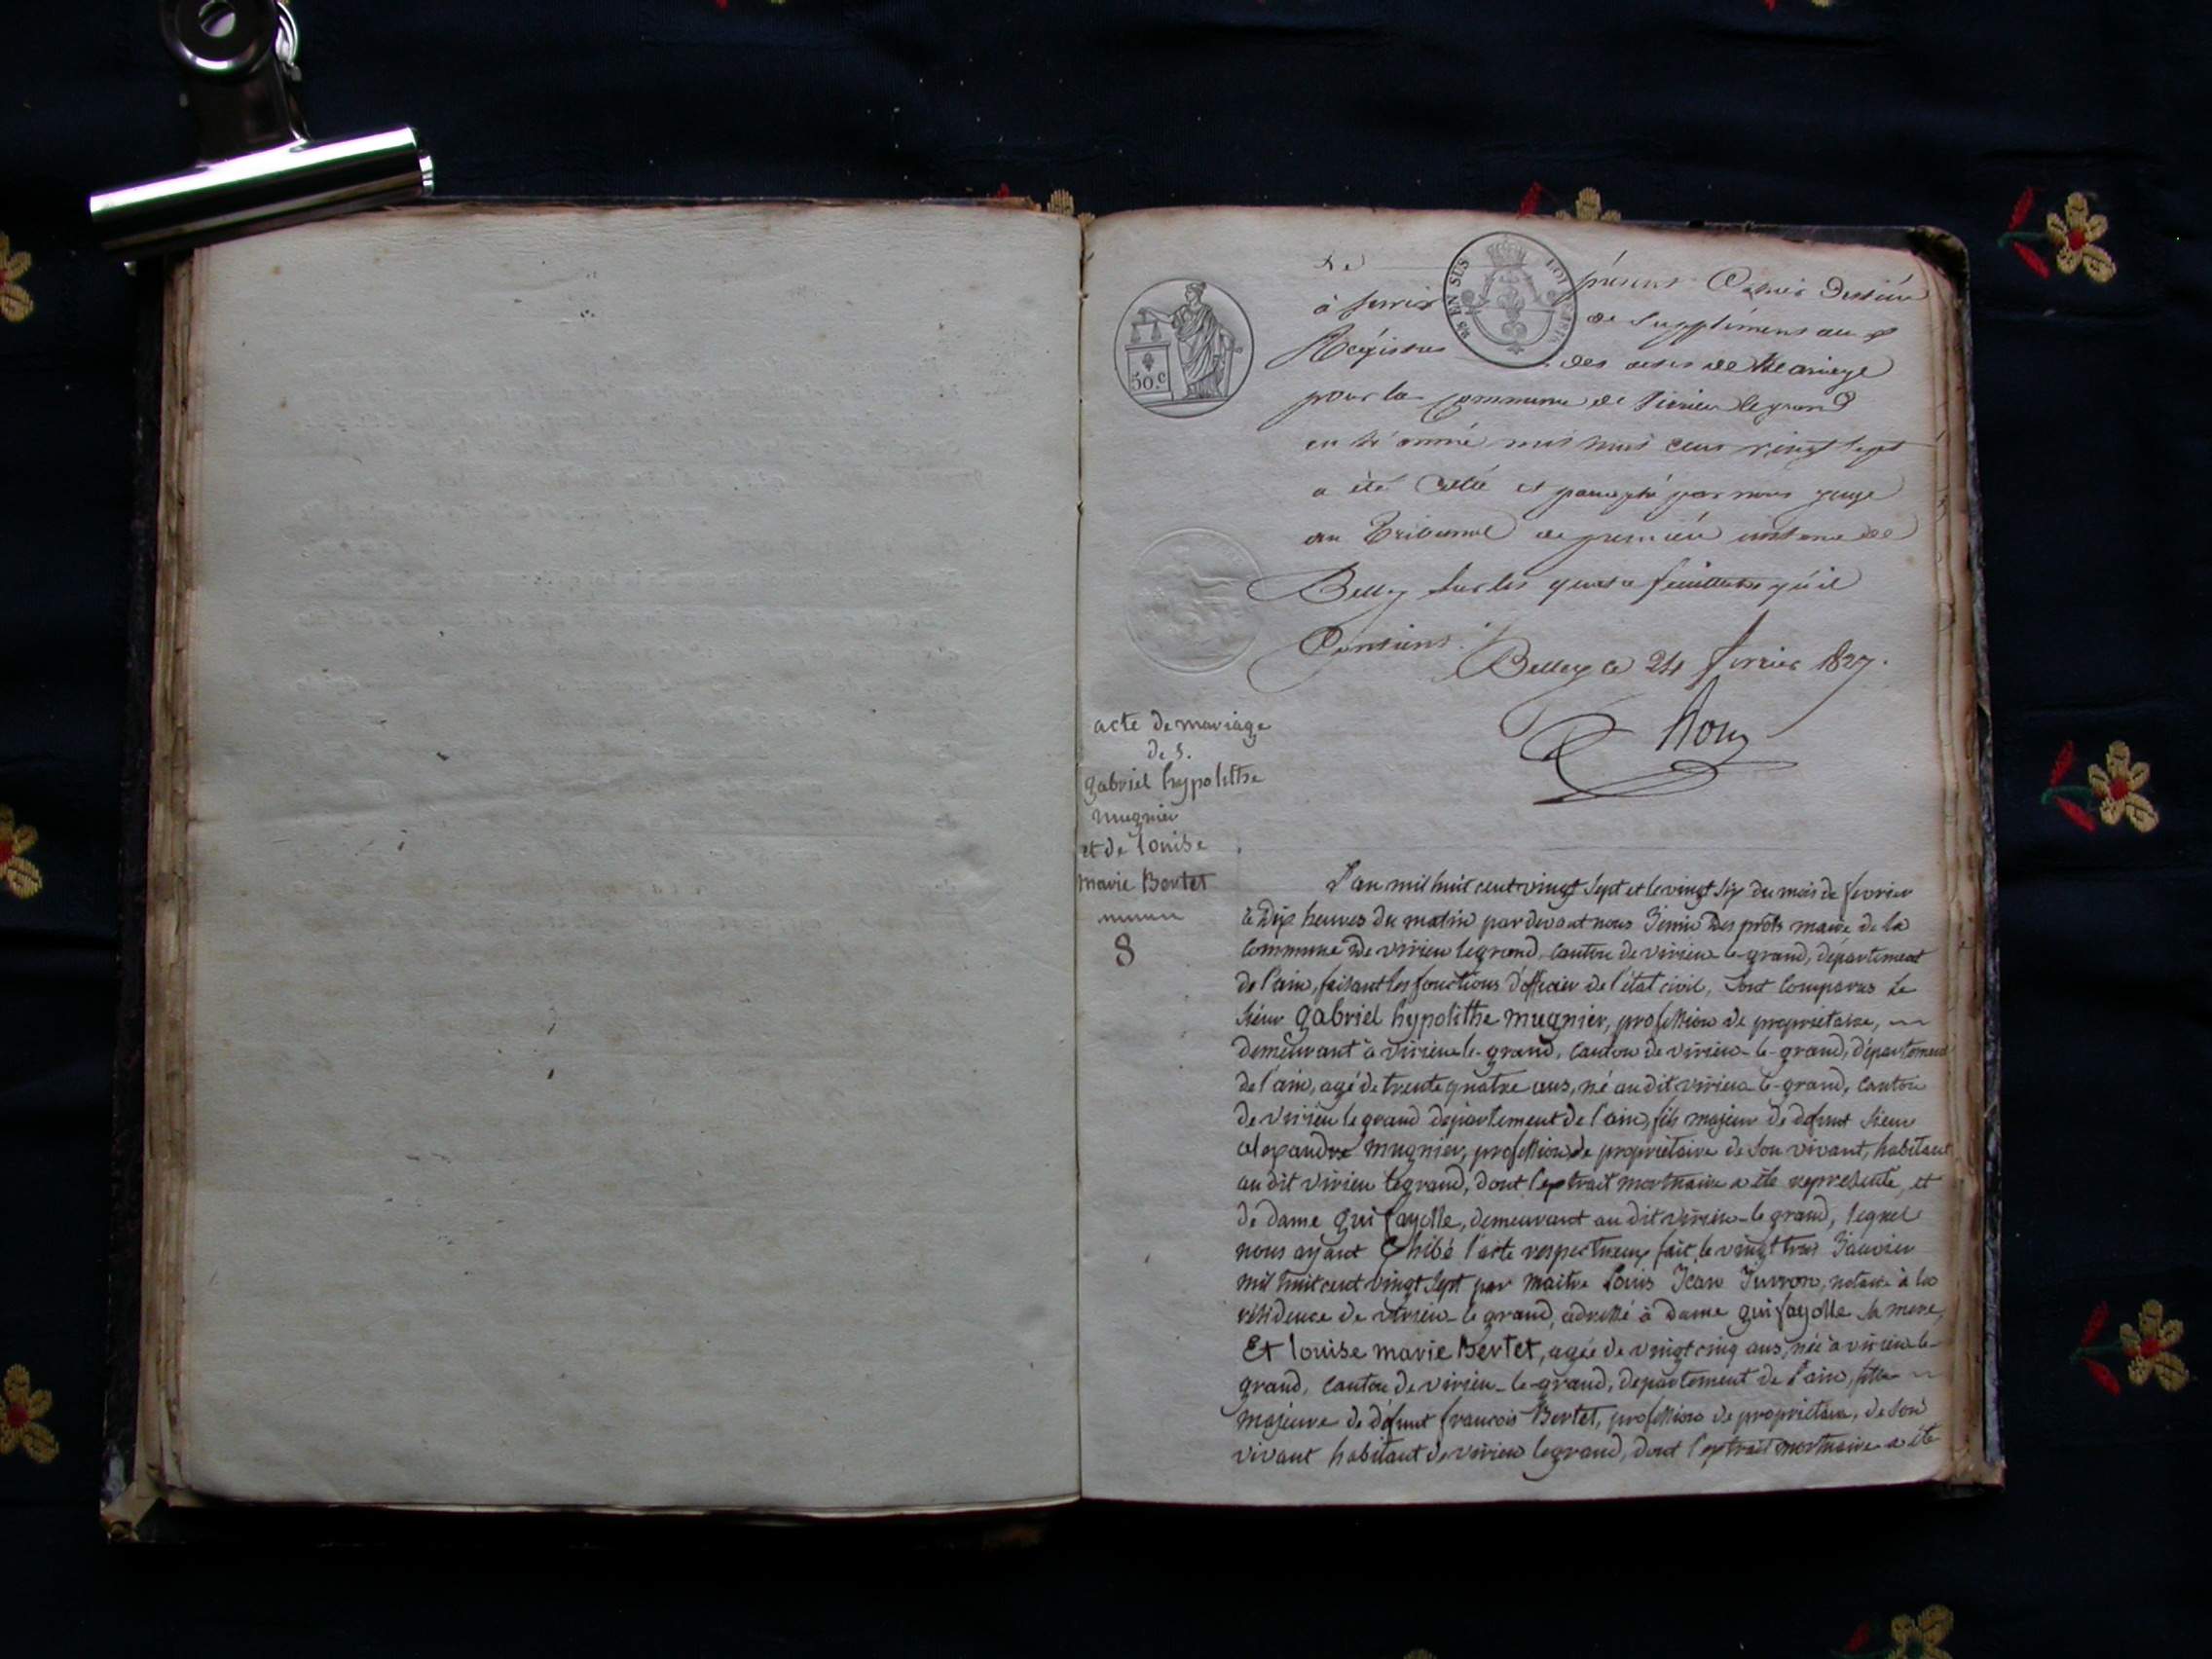 Le présent Cahier Destiné
à servir de Supplément aux
Régistres des actes de Mariage
pour la Commune de Virieu legrand
en l'année mil huit cent vingt sept
a été Cotté et paraphé par nous juge
au Tribunal de première instance de
Belley sur les quatre feuillets qu'il
Contient.
Belley le 24 février 1827.
50.c
EN SUS
acte de mariage
de S.
gabriel hypolithe
mugnier
et de louise
marie Bertet
8
L'an mil huit cent vingt sept et le vingt six du mois de fevrier
à Dix heures du matin par devant nous maire de la
Commune De virieu legrand, canton de virieu-le-grand, département
de l'ain, faisant les fonctions d'officier de l'état civil, sont comparus Le
sieur gabriel hypolithe mugnier, profession de proprietaire,
demeurant à virieu-le-grand, canton de virieu-le-grand, département
de l'ain, agé de trente quatre ans, né au dit virieu-le-grand, canton
de virieu le grand département de l'ain, fils majeur de defunt sieur
alexandre mugnier, profession de proprietaire de son vivant, habitant
au dit virieu legrand, dont l'extrait mortuaire a été representé, et
de Dame gui fayolle, demeurant au dit virieu-le grand, lequel
nous ayant Exhibé l'acte respectueux fait le vingt trois Janvier
mil huit cent vingt sept par maitre Louis Jean notaire à la
résidence de virieu-le grand, adressé à Dame gui fayolle sa mere,
Et louise marie Bertet, agée de vingt cinq ans, née à virieu-le-
grand, canton de virieu-le-grand, departement de l'ain, fille
majeure de défunt francois Bertet, profession de proprietaire, de son
vivant habitant de virieu legrand, dont l'extrait mortuaire a été